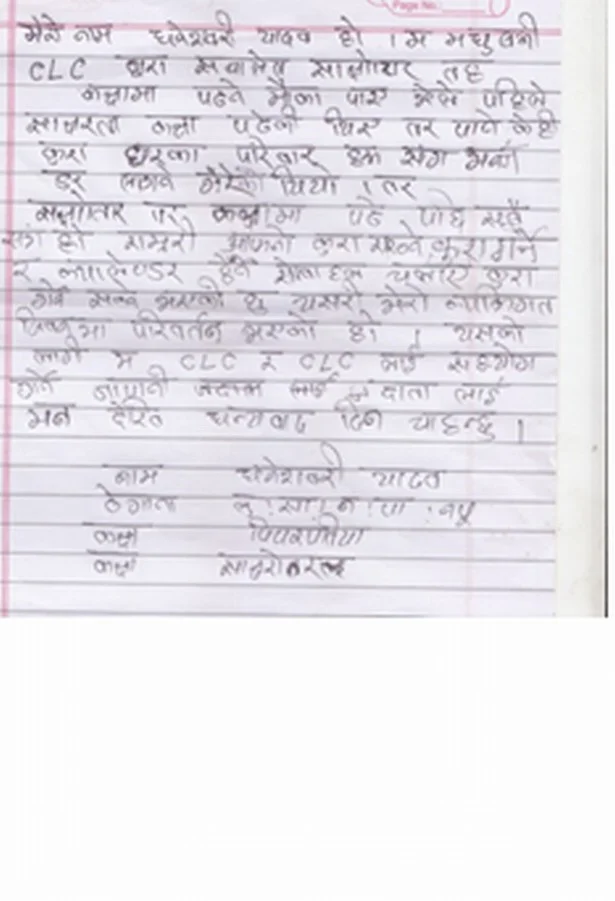 Page No.
मेरो नाम धनेश्वरी यादव हो । म मधुवनी
CLC द्वारा संचालित साक्षोत्तर तह
कक्षामा पढ्ने मौका पाए मैले पहिले
साक्षरता कक्षा पढेकी थिए तर पनि केही
कुरा घरका परिवार हरु संग भन्न
डर लाग्ने गरेको थियो । तर
साक्षोतर तह कक्षामा पढे पछि सबै
संग हो राम्ररी आफ्नो कुरा राख्ने कुरा गर्न
र क्यालेण्डर हेर्ने मोबाइल चलाए कुरा
गर्न सक्ने भएको छु यसरी मेरो व्यक्तिगत
परिवर्तन भएको हो । यसको
लागी म CLC र CLC लाई सहयोग
गर्ने जापानी लाई दाता लाई
मन देखि धन्यवाद दिन चाहन्छु ।
नाम धनेश्वरी यादव
ठेगाना लु ।सा। न ।पा
कक्षा पिपरहिया
कक्षा